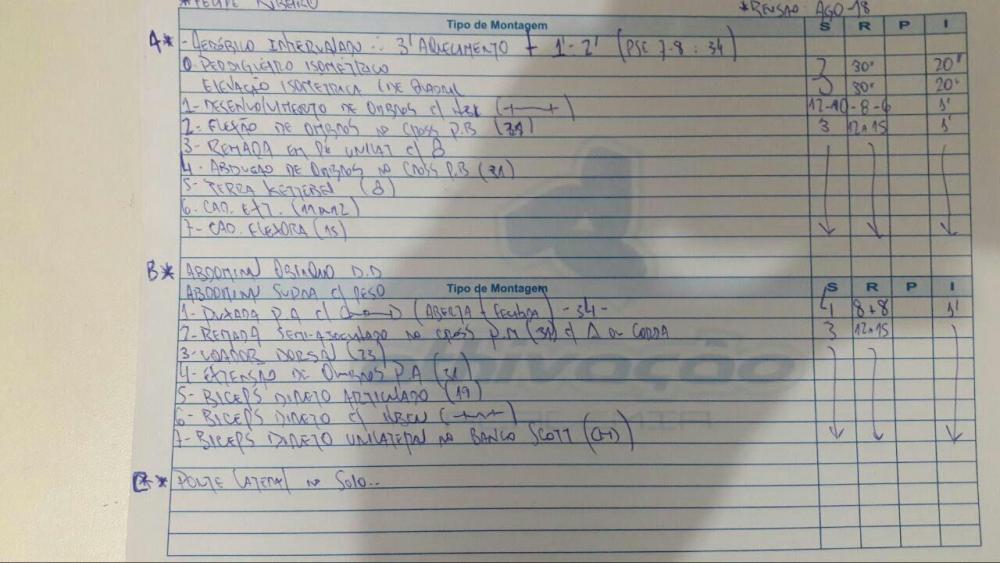 *FELIPE RIBEIRO
*REVISÃO: AGO-18
Tipo de Montagem S R P I
A* - AERÓBICO INTERVALADO :. 3' AQUECIMENTO + 1'- 2' (PSE 7-8 : 34)
0- PERDIGUEIRO ISOMÉTRICO 3 30" 20"
ELEVAÇÃO ISOMÉTRICA DE QUADRIL 3 30" 20"
1- DESENVOLVIMENTO DE OMBROS C/ 12-10-8-6 1'
2- FLEXÃO DE OMBROS NO CROSS P.B (31) 3 12 A 15 1'
3- REMADA EM PÉ UNILAT C/
4- ABDUÇÃO DE OMBROS NO CROSS P.B (31)
5- TERRA KETTEBELL
6- CAD. EXT. (11 OU 12)
7- CAD. FLEXORA (15)
B* ABDOMINAL OBLÍQUO D.D
ABDOMINAL SUPRA C/ PESO
Tipo de Montagem S R P I
1- PUXADA P.A C/ (ABERTA + FECHADA) -34- 4 8+8 1'
2- REMADA SEMI-AJOELHADO NO CROSS P.M (31) C/ Δ OU CORDA 3 12 A 15
3- VOADOR DORSAL (23)
4- EXTENSÃO DE OMBROS P.A (31)
5- BICEPS DIRETO ARTICULADO (19)
6- BICEPS DIRETO C/
7- BICEPS DIRETO UNILATERAL NO BANCO SCOTT
ativação
ACADEMIA
C* PONTE LATERAL NO SOLO..